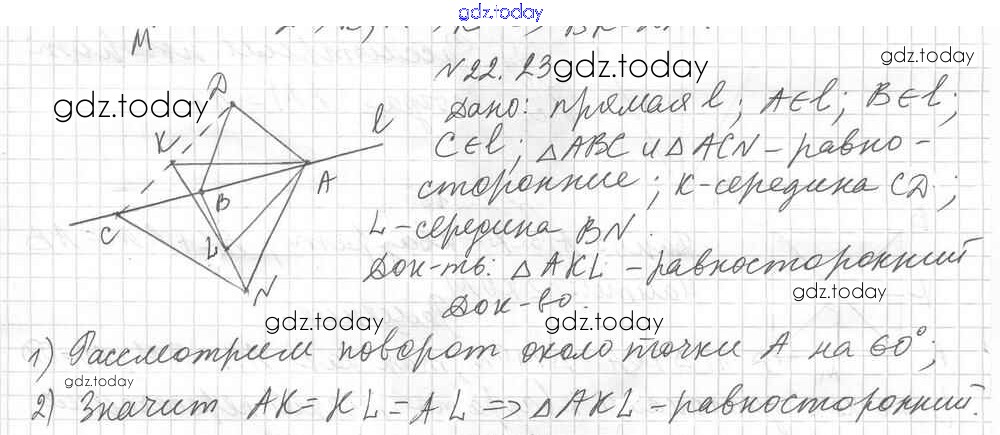 gdz.today
M
N22.23 gdz.today
gdz.today
Дано: прямая l; A∈l; B∈l;
C∈l; △ABC и △ACN – равно-
сторонние; K-середина CD;
L-середина BN.
Док-ть: △AKL – равносторонний
Док-во.
D
K
l
A
B
C
L
N
gdz.today
gdz.today
gdz.today
1) Рассмотрим поворот около точки A на 60°;
gdz.today
2) Значит AK = KL = AL => △AKL – равносторонний.